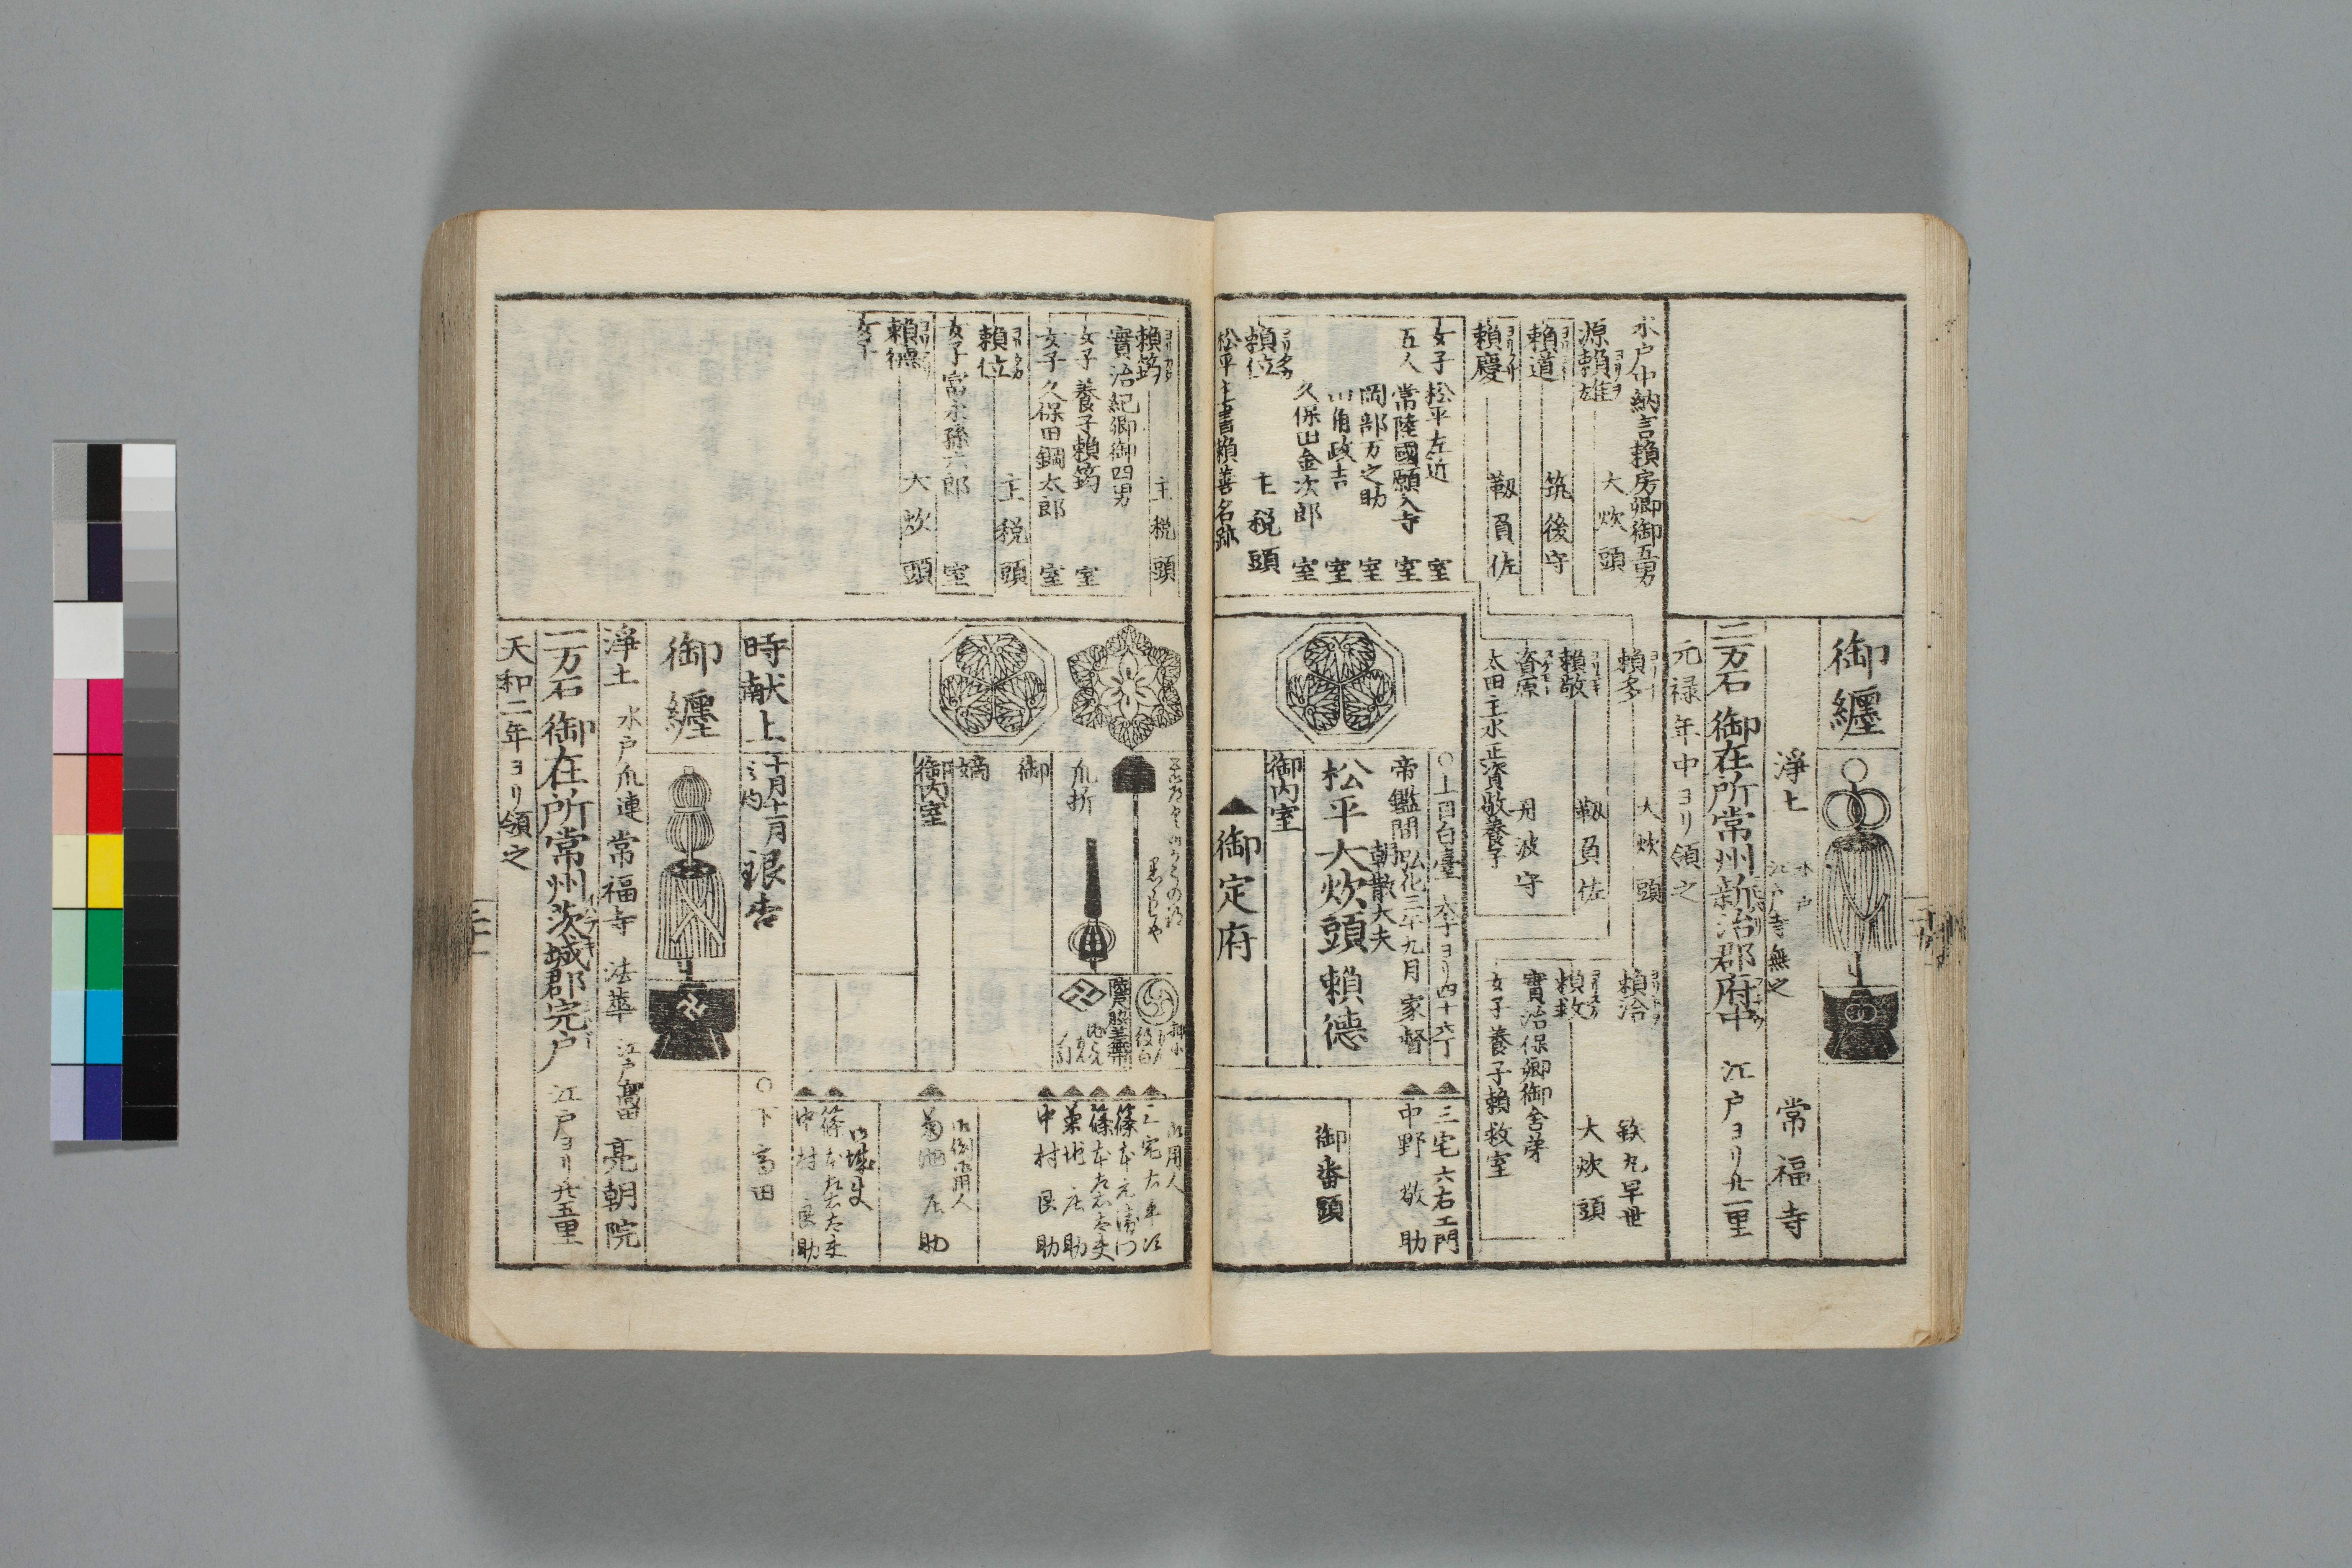 御纏
浄土
水戸
江戸寺無之
常福寺
二万石 御在所常州新治郡府中 江戸ヨリ廿一里
元禄年中ヨリ領之
水戸中納言頼房卿御五男
源頼雄 大炊頭
頼道 筑後守
頼慶 靱負佐
頼多 大炊頭
頼敬 靱負佐
資原 丹波守
太田主水正資敬養子
頼洽 鉄丸早世
頼救 大炊頭
實治保卿御舎弟
女子 養子頼救室
女子 松平左近 室
五人 常陸國願入寺 室
岡部万之助 室
山角政吉 室
久保田金次郎 室
頼位 主税頭
松平主書頼善名跡
○上目白臺 大手ヨリ四十六丁
帝鑑間 弘化三年九月 家督
朝散大夫
松平大炊頭頼徳
御内室
御定府
三宅六右エ門
中野敬助
御番頭
頼筠 主税頭
實治紀卿御四男
女子 養子頼筠 室
女子 久保田鋼太郎 室
頼位 主税頭
女子 富永孫六郎 室
頼徳 大炊頭
女子
爪折
御
嫡
御内室
御用人
三宅右平次
篠本元衛門
篠本左右太夫
菊地庄助
中村良助
御側御用人
菊池庄助
御城使
篠本左右太夫
中村良助
時献上
十月十一月
之内
銀杏
○下 高田
御纏
浄土 水戸爪連 常福寺 法華 江戸高田 亮朝院
一万石 御在所常州茨城郡宍戸 江戸ヨリ廿五里
天和二年ヨリ領之